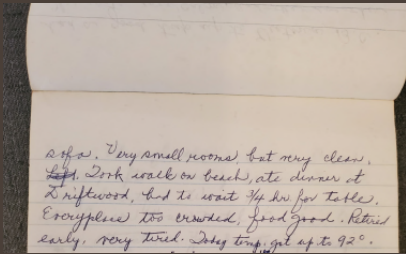 sofa. Very small rooms, but very clean.
Took walk on beach, ate dinner at
Driftwood, had to wait 3/4 hr for table.
Everyplace too crowded, food good. Retired
early, very tired. Today temp. got up to 92°.